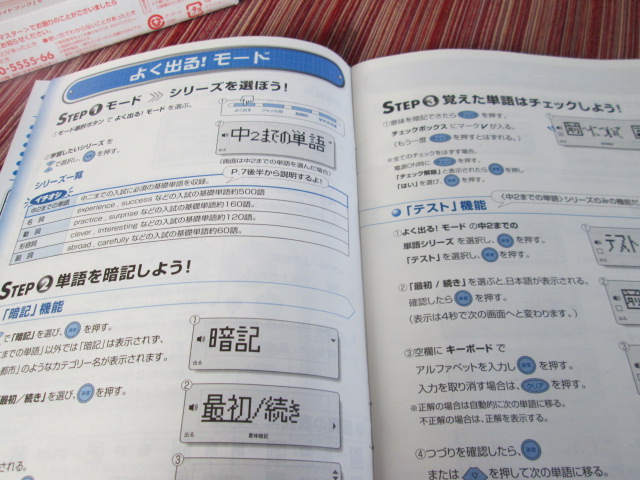 0-5555-66
よく出る! モード
STEP 1 モード シリーズを選ぼう!
①モード選択ボタン で よく出る! モード を選ぶ。
②学習したいシリーズ を
で選択し、 を押す。
中2までの単語
(画面は中2までの単語を選んだ場合)
P.7後半から説明するよ!
シリーズ一覧
イチオシ
中2までの単語 中二までの入試に必須の基礎単語を収録。
名詞 experience , success などの入試の基礎単語約500語
動詞 practice , surprise などの入試の基礎単語約160語。
形容詞 clever , interesting などの入試の基礎単語約120語。
副詞 abroad , carefully などの入試の基礎単語約60語。
STEP 2 単語を暗記しよう!
「暗記」機能
で「暗記」を選び、 を押す。
までの単語」以外では「暗記」は表示されず、
都市」のようなカテゴリー名が表示されます。
①
暗記
「最初/続き」を選び、 を押す。
②
最初/続き
意味暗記
③
される。
STEP 3 覚えた単語はチェックしよう!
①意味を暗記できたら を押す。
チェックボックス にマークVが入る。
(もう一度 を押すとはずれる。)
※全てのチェックをはずす場合、
電源ON時に を押す。
「チェック解除」と表示されたら を押し
「はい」を選び、 を押す。
「テスト」機能
(中2までの単語)シリーズのみの機能だ
①よく出る! モード の中2までの
単語シリーズ を選択し、 を押す。
「テスト」を選択し、 を押す。
テスト
②「最初 / 続き」を選ぶと、日本語が表示される。
確認したら を押す。
(表示は4秒で次の画面へと変わります。)
③空欄に キーボード で
アルファベットを入力し を押す。
入力を取り消す場合は、 クリア を押す。
※正解の場合は自動的に次の単語に移る。
不正解の場合は、正解を表示する。
④つづりを確認したら、
または を押して次の単語に移る。